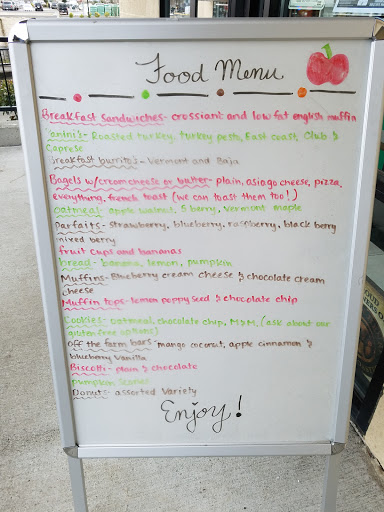 Food Menu
Breakfast sandwiches- crossiant and low fat english muffin
Panini's- Roasted turkey, turkey pesto, East coast, Club &
Caprese
Breakfast burritos- Vermont and Baja
Bagels w/creamcheese or butter- plain, asiago cheese, pizza,
everything, french toast (we can toast them too!)
oatmeal- apple walnut, 5 berry, vermont maple
Parfaits- strawberry, blueberry, raspberry, black berry
mixed berry
fruit cups and bananas
bread- banana, lemon, pumpkin
Muffins- Blueberry cream cheese & chocolate cream
cheese
Muffin tops-lemon poppy seed & chocolate chip
Cookies- oatmeal, chocolate chip, M&M, (ask about our
gluten free options)
off the farm bars- mango coconut, apple cinnamon &
blueberry vanilla
Biscotti- plain & chocolate
pumpkin scones
Donuts- assorted variety
Enjoy!